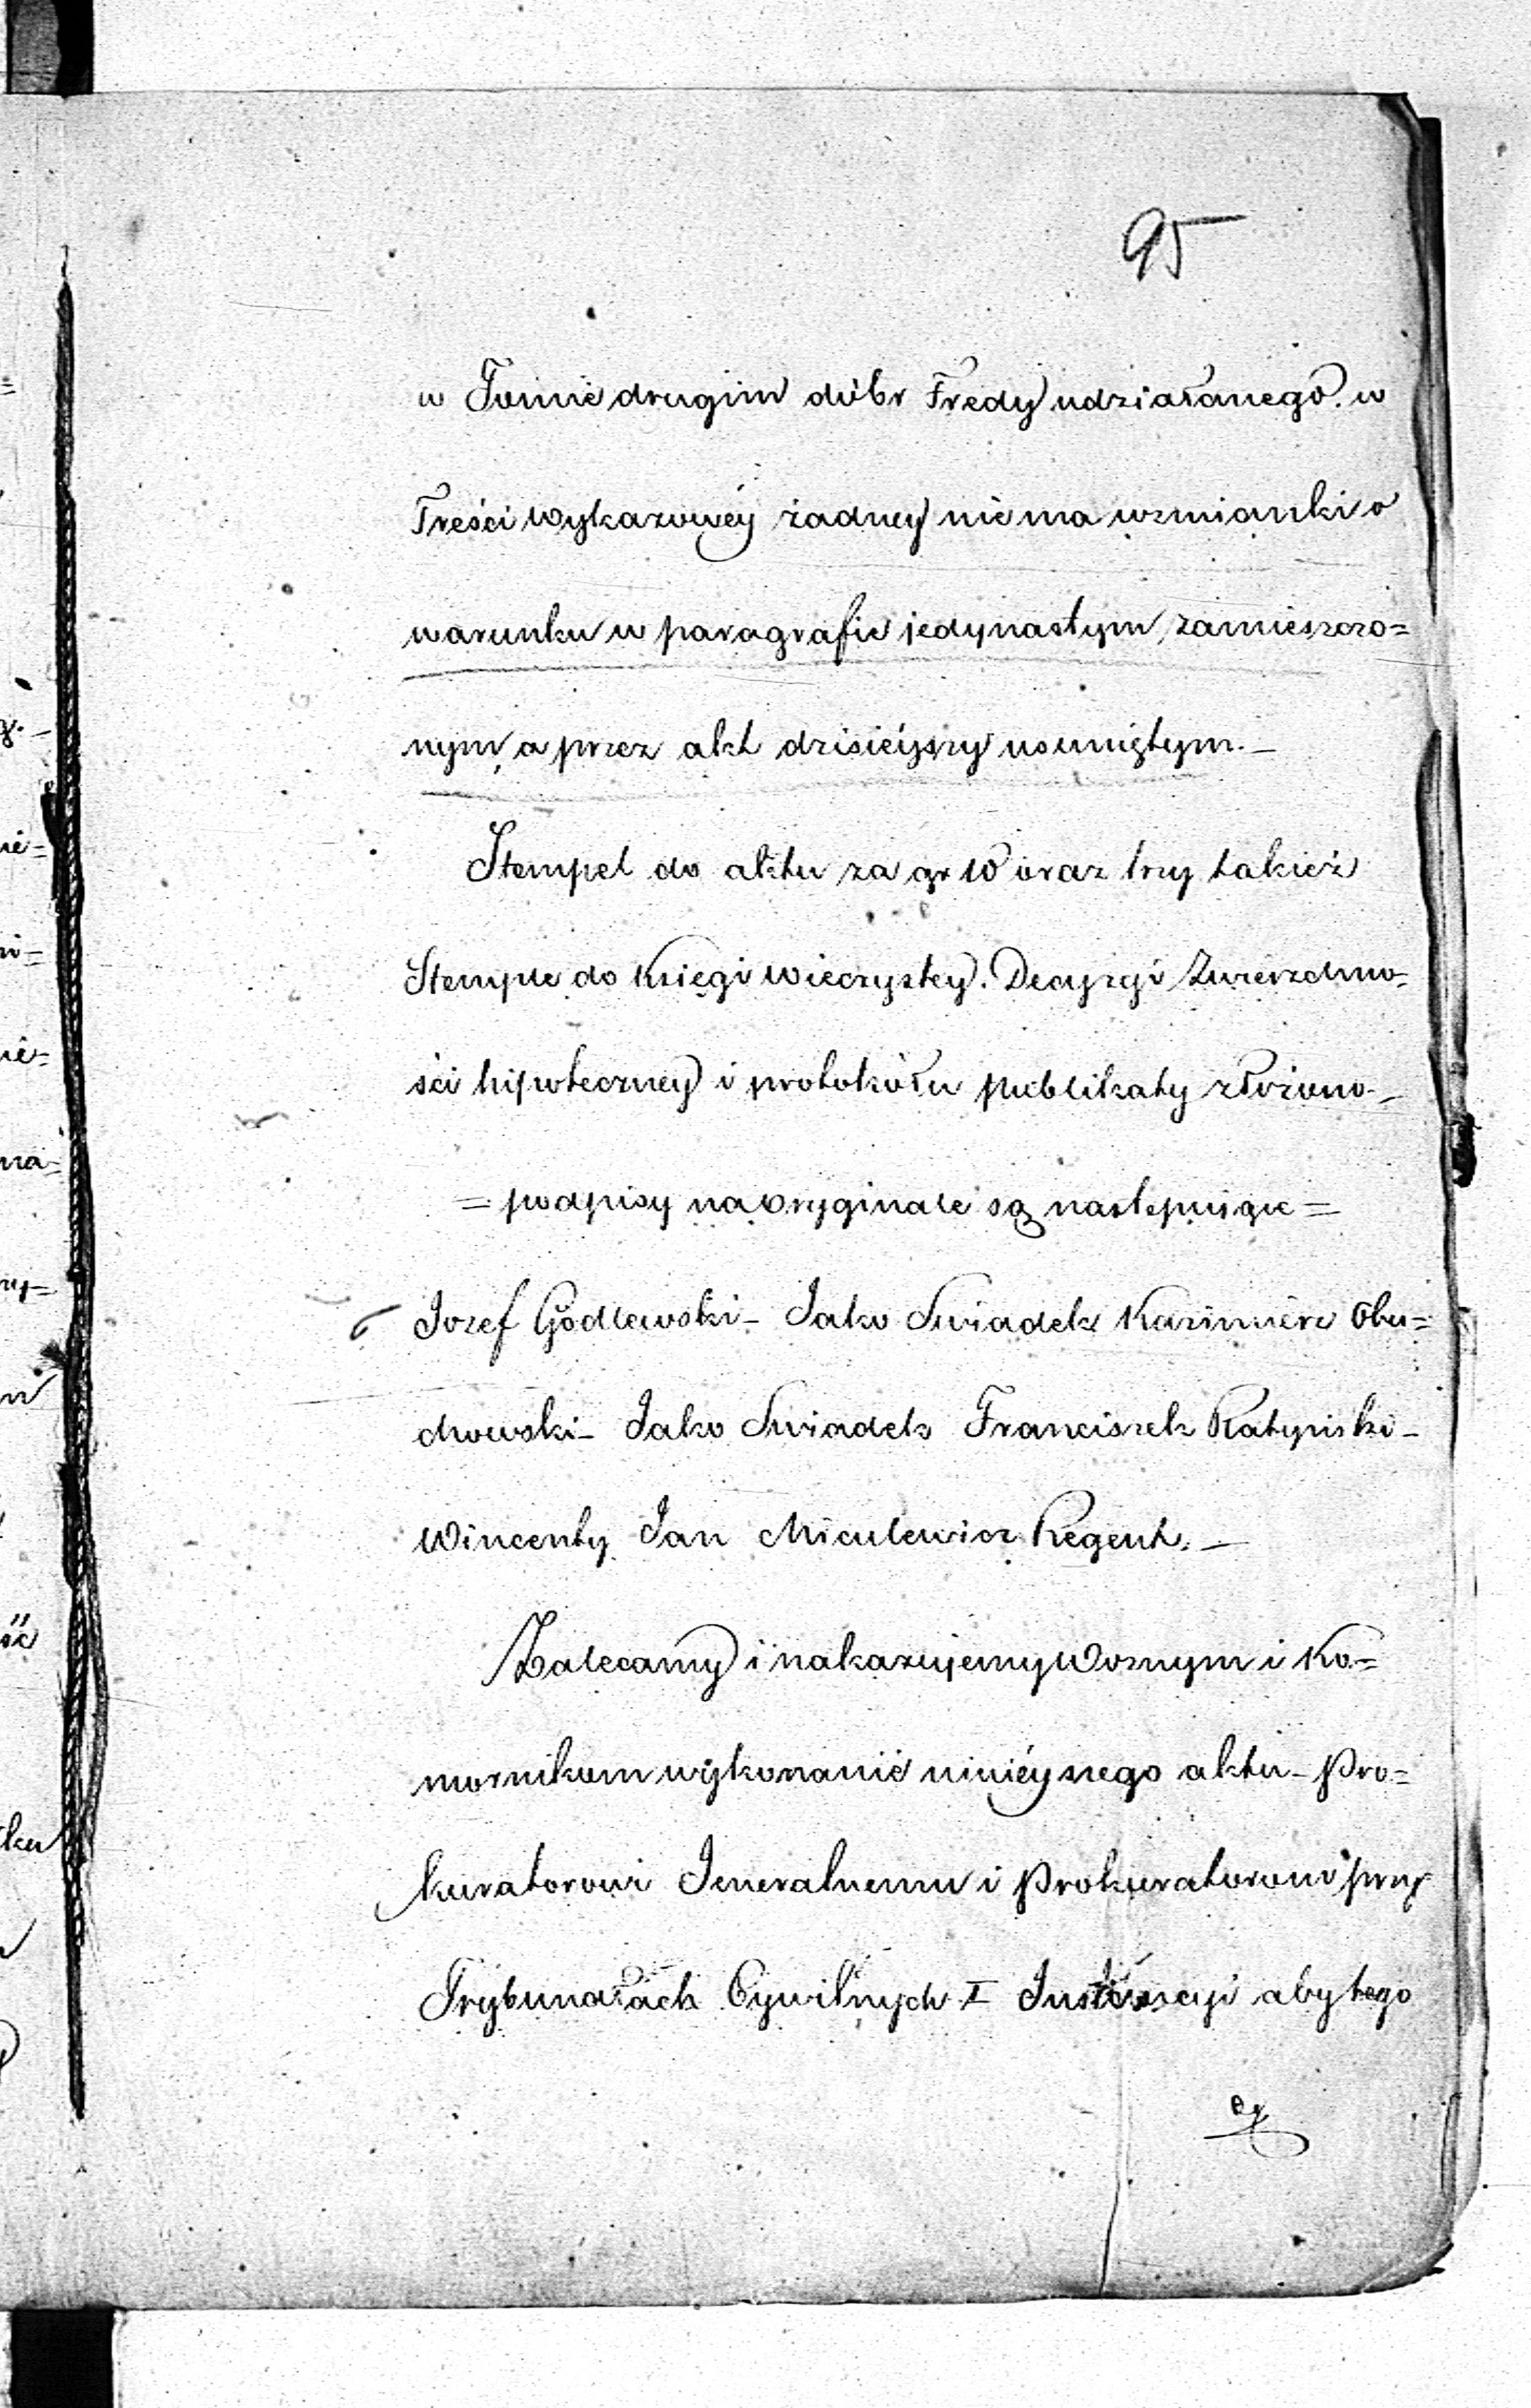 95
w Tomie drugim dóbr Fredy udziałanego. w
Treści wykazowéy żadney nie ma wzmianki o
warunku w paragrafie jedynastym, zamieszczo=
nym, a przez akt dzisieyszy usuniętym. —
Stempel do aktu za gr 10 oraz trzy takież
Stemple do Księgi wieczystey. Decyzyi Zwierzchno-
ści hipoteczney i protokółu publikaty złożono. —
= podpisy na oryginale są następuiące =
Jozef Godlewski — Jako Swiadek Kazimierz Obu=
chowski — Jako Swiadek Franciszek Ratyński —
Wincenty Jan Miculewicz Regent. —
Zalecamy i nakazujemy Woznym i Ko=
mornikom wykonanie ninieyszego aktu — Pro=
kuratorowi Jeneralnemu i Prokuratorom przy
Trybunałach Cywilnych I Instancyi aby tego